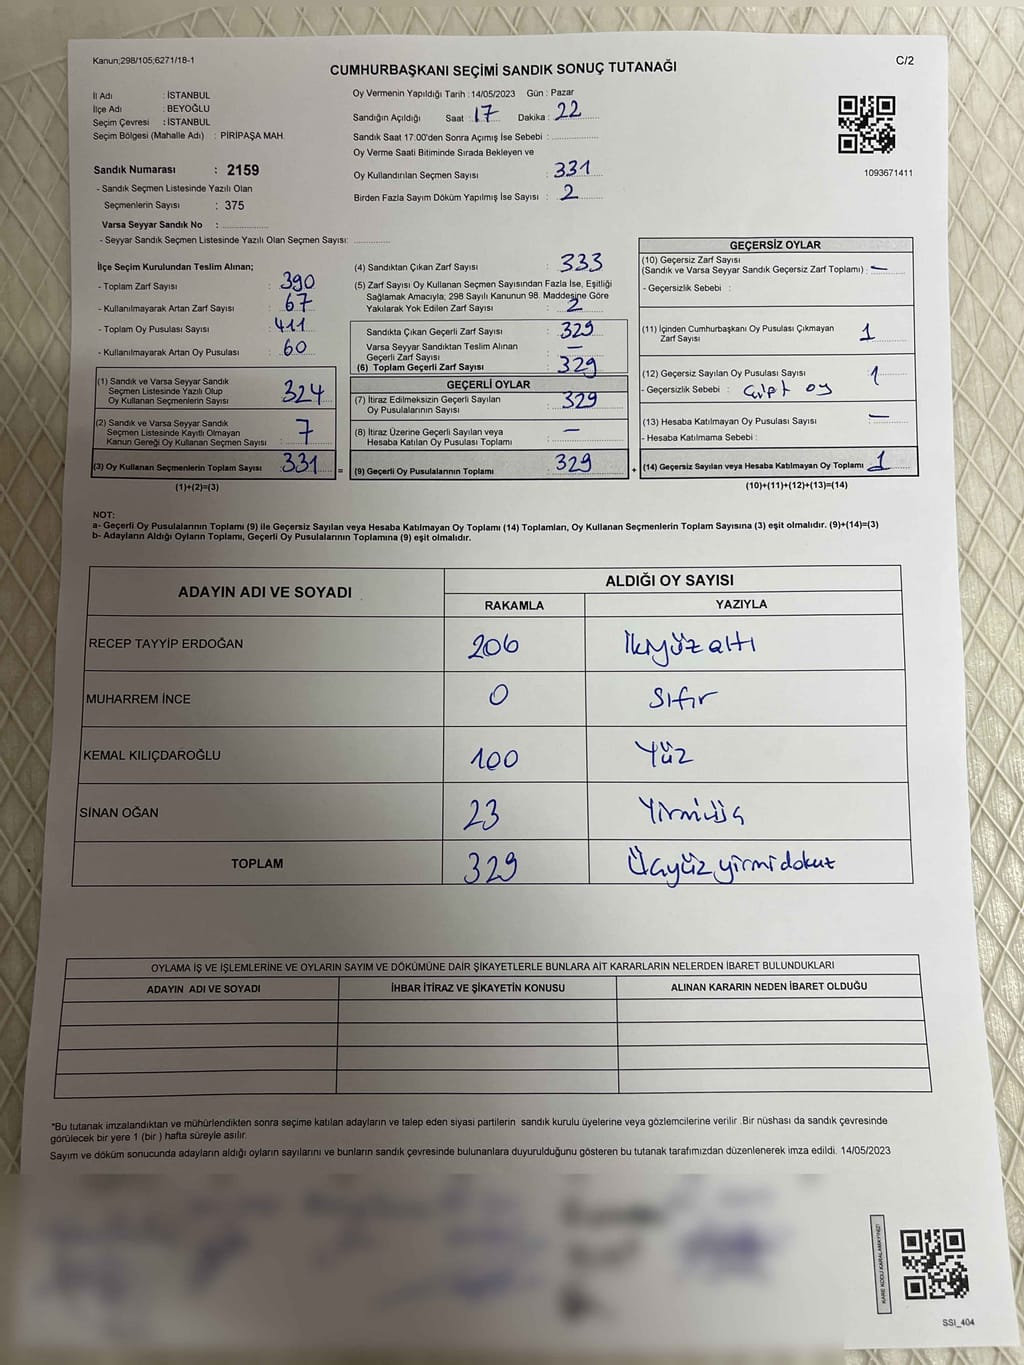 Kanun;298/105;6271/18-1
C/2
CUMHURBAŞKANI SEÇİMİ SANDIK SONUÇ TUTANAĞI
İl Adı : İSTANBUL
İlçe Adı : BEYOĞLU
Seçim Çevresi : İSTANBUL
Seçim Bölgesi (Mahalle Adı) : PİRİPAŞA MAH.
Sandık Numarası : 2159
- Sandık Seçmen Listesinde Yazılı Olan
Seçmenlerin Sayısı : 375
Varsa Seyyar Sandık No :
- Seyyar Sandık Seçmen Listesinde Yazılı Olan Seçmen Sayısı:
Oy Vermenin Yapıldığı Tarih :14/05/2023 Gün : Pazar
Sandığın Açıldığı Saat : 17 Dakika : 22
Sandık Saat 17:00'den Sonra Açımış İse Sebebi :
Oy Verme Saati Bitiminde Sırada Bekleyen ve
Oy Kullandırılan Seçmen Sayısı : 331
Birden Fazla Sayım Döküm Yapılmış İse Sayısı : 2
1093671411
İlçe Seçim Kurulundan Teslim Alınan;
- Toplam Zarf Sayısı : 390
- Kullanılmayarak Artan Zarf Sayısı : 67
- Toplam Oy Pusulası Sayısı : 411
- Kullanılmayarak Artan Oy Pusulası : 60
(1) Sandık ve Varsa Seyyar Sandık
Seçmen Listesinde Yazılı Olup
Oy Kullanan Seçmenlerin Sayısı : 324
(2) Sandık ve Varsa Seyyar Sandık
Seçmen Listesinde Kayıtlı Olmayan
Kanun Gereği Oy Kullanan Seçmen Sayısı : 7
(3) Oy Kullanan Seçmenlerin Toplam Sayısı : 331
(1)+(2)=(3)
=
(4) Sandıktan Çıkan Zarf Sayısı : 333
(5) Zarf Sayısı Oy Kullanan Seçmen Sayısından Fazla İse, Eşitliği
Sağlamak Amacıyla; 298 Sayılı Kanunun 98. Maddesine Göre
Yakılarak Yok Edilen Zarf Sayısı : 2
Sandıkta Çıkan Geçerli Zarf Sayısı : 329
Varsa Seyyar Sandıktan Teslim Alınan
Geçerli Zarf Sayısı : —
(6) Toplam Geçerli Zarf Sayısı : 329
GEÇERLİ OYLAR
(7) İtiraz Edilmeksizin Geçerli Sayılan
Oy Pusulalarının Sayısı : 329
(8) İtiraz Üzerine Geçerli Sayılan veya
Hesaba Katılan Oy Pusulası Toplamı : —
(9) Geçerli Oy Pusulalarının Toplamı : 329
+
GEÇERSİZ OYLAR
(10) Geçersiz Zarf Sayısı
(Sandık ve Varsa Seyyar Sandık Geçersiz Zarf Toplamı) : —
- Geçersizlik Sebebi :
(11) İçinden Cumhurbaşkanı Oy Pusulası Çıkmayan
Zarf Sayısı : 1
(12) Geçersiz Sayılan Oy Pusulası Sayısı : 1
- Geçersizlik Sebebi : çift oy
(13) Hesaba Katılmayan Oy Pusulası Sayısı : —
- Hesaba Katılmama Sebebi :
(14) Geçersiz Sayılan veya Hesaba Katılmayan Oy Toplamı : 1
(10)+(11)+(12)+(13)=(14)
NOT:
a- Geçerli Oy Pusulalarının Toplamı (9) ile Geçersiz Sayılan veya Hesaba Katılmayan Oy Toplamı (14) Toplamları, Oy Kullanan Seçmenlerin Toplam Sayısına (3) eşit olmalıdır. (9)+(14)=(3)
b- Adayların Aldığı Oyların Toplamı, Geçerli Oy Pusulalarının Toplamına (9) eşit olmalıdır.
ADAYIN ADI VE SOYADI
ALDIĞI OY SAYISI
RAKAMLA YAZIYLA
RECEP TAYYİP ERDOĞAN 206 İkiyüz altı
MUHARREM İNCE 0 Sıfır
KEMAL KILIÇDAROĞLU 100 Yüz
SİNAN OĞAN 23 Yirmiüç
TOPLAM 329 Üçyüz yirmi dokuz
OYLAMA İŞ VE İŞLEMLERİNE VE OYLARIN SAYIM VE DÖKÜMÜNE DAİR ŞİKAYETLERLE BUNLARA AİT KARARLARIN NELERDEN İBARET BULUNDUKLARI
ADAYIN ADI VE SOYADI İHBAR İTİRAZ VE ŞİKAYETİN KONUSU ALINAN KARARIN NEDEN İBARET OLDUĞU
*Bu tutanak imzalandıktan ve mühürlendikten sonra seçime katılan adayların ve talep eden siyasi partilerin sandık kurulu üyelerine veya gözlemcilerine verilir .Bir nüshası da sandık çevresinde
görülecek bir yere 1 (bir ) hafta süreyle asılır.
Sayım ve döküm sonucunda adayların aldığı oyların sayılarını ve bunların sandık çevresinde bulunanlara duyurulduğunu gösteren bu tutanak tarafımızdan düzenlenerek imza edildi. 14/05/2023
KARE KODU KARALAMAYINIZ!
SSI_404